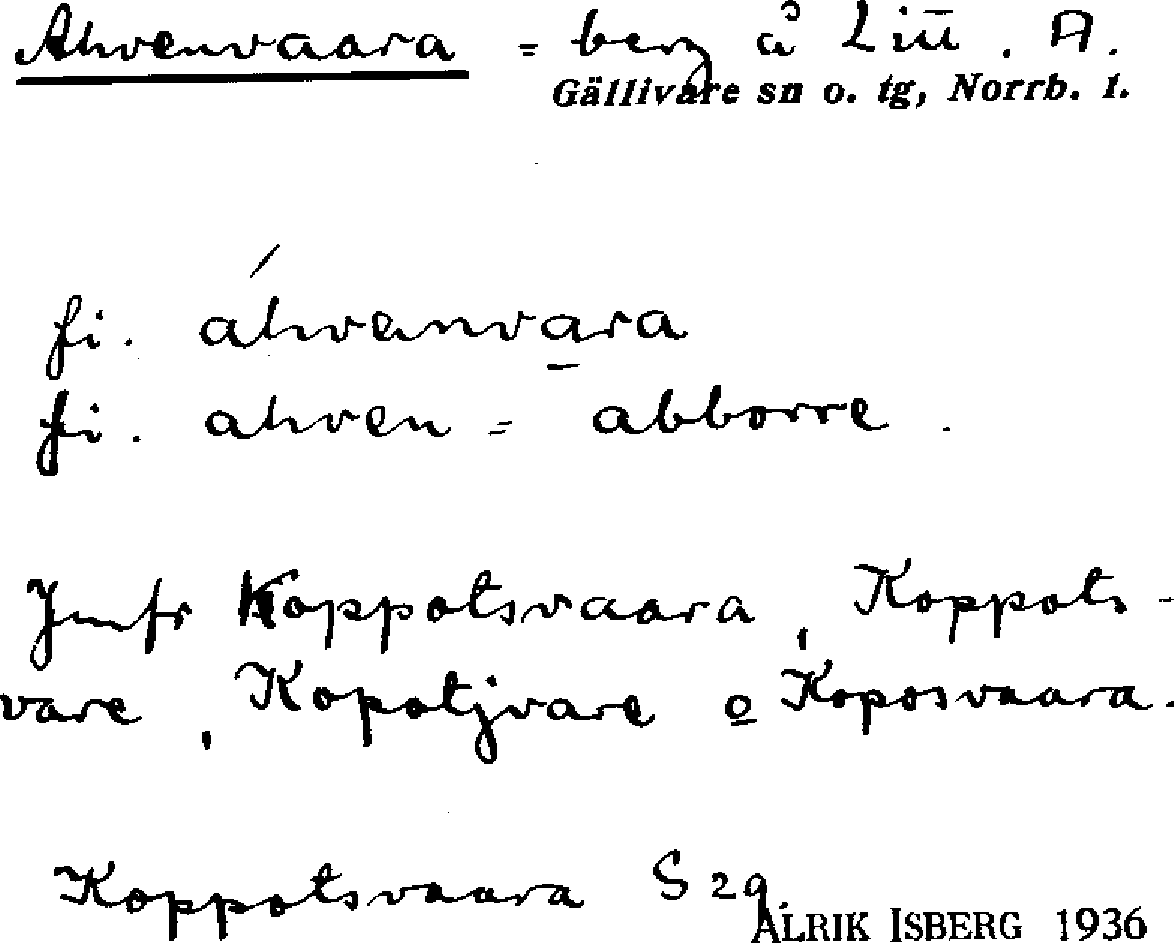 Ahvenvaara = berg å Lin. A.
Gällivare sn o. tg, Norrb. l.
fi. áhvenvara
fi. ahven = abborre.
Jmfr Koppotsvaara, Koppots-
vare, Kopotjvare o Koposvaara.
Koppotsvaara S 29.
ALRIK ISBERG 1936